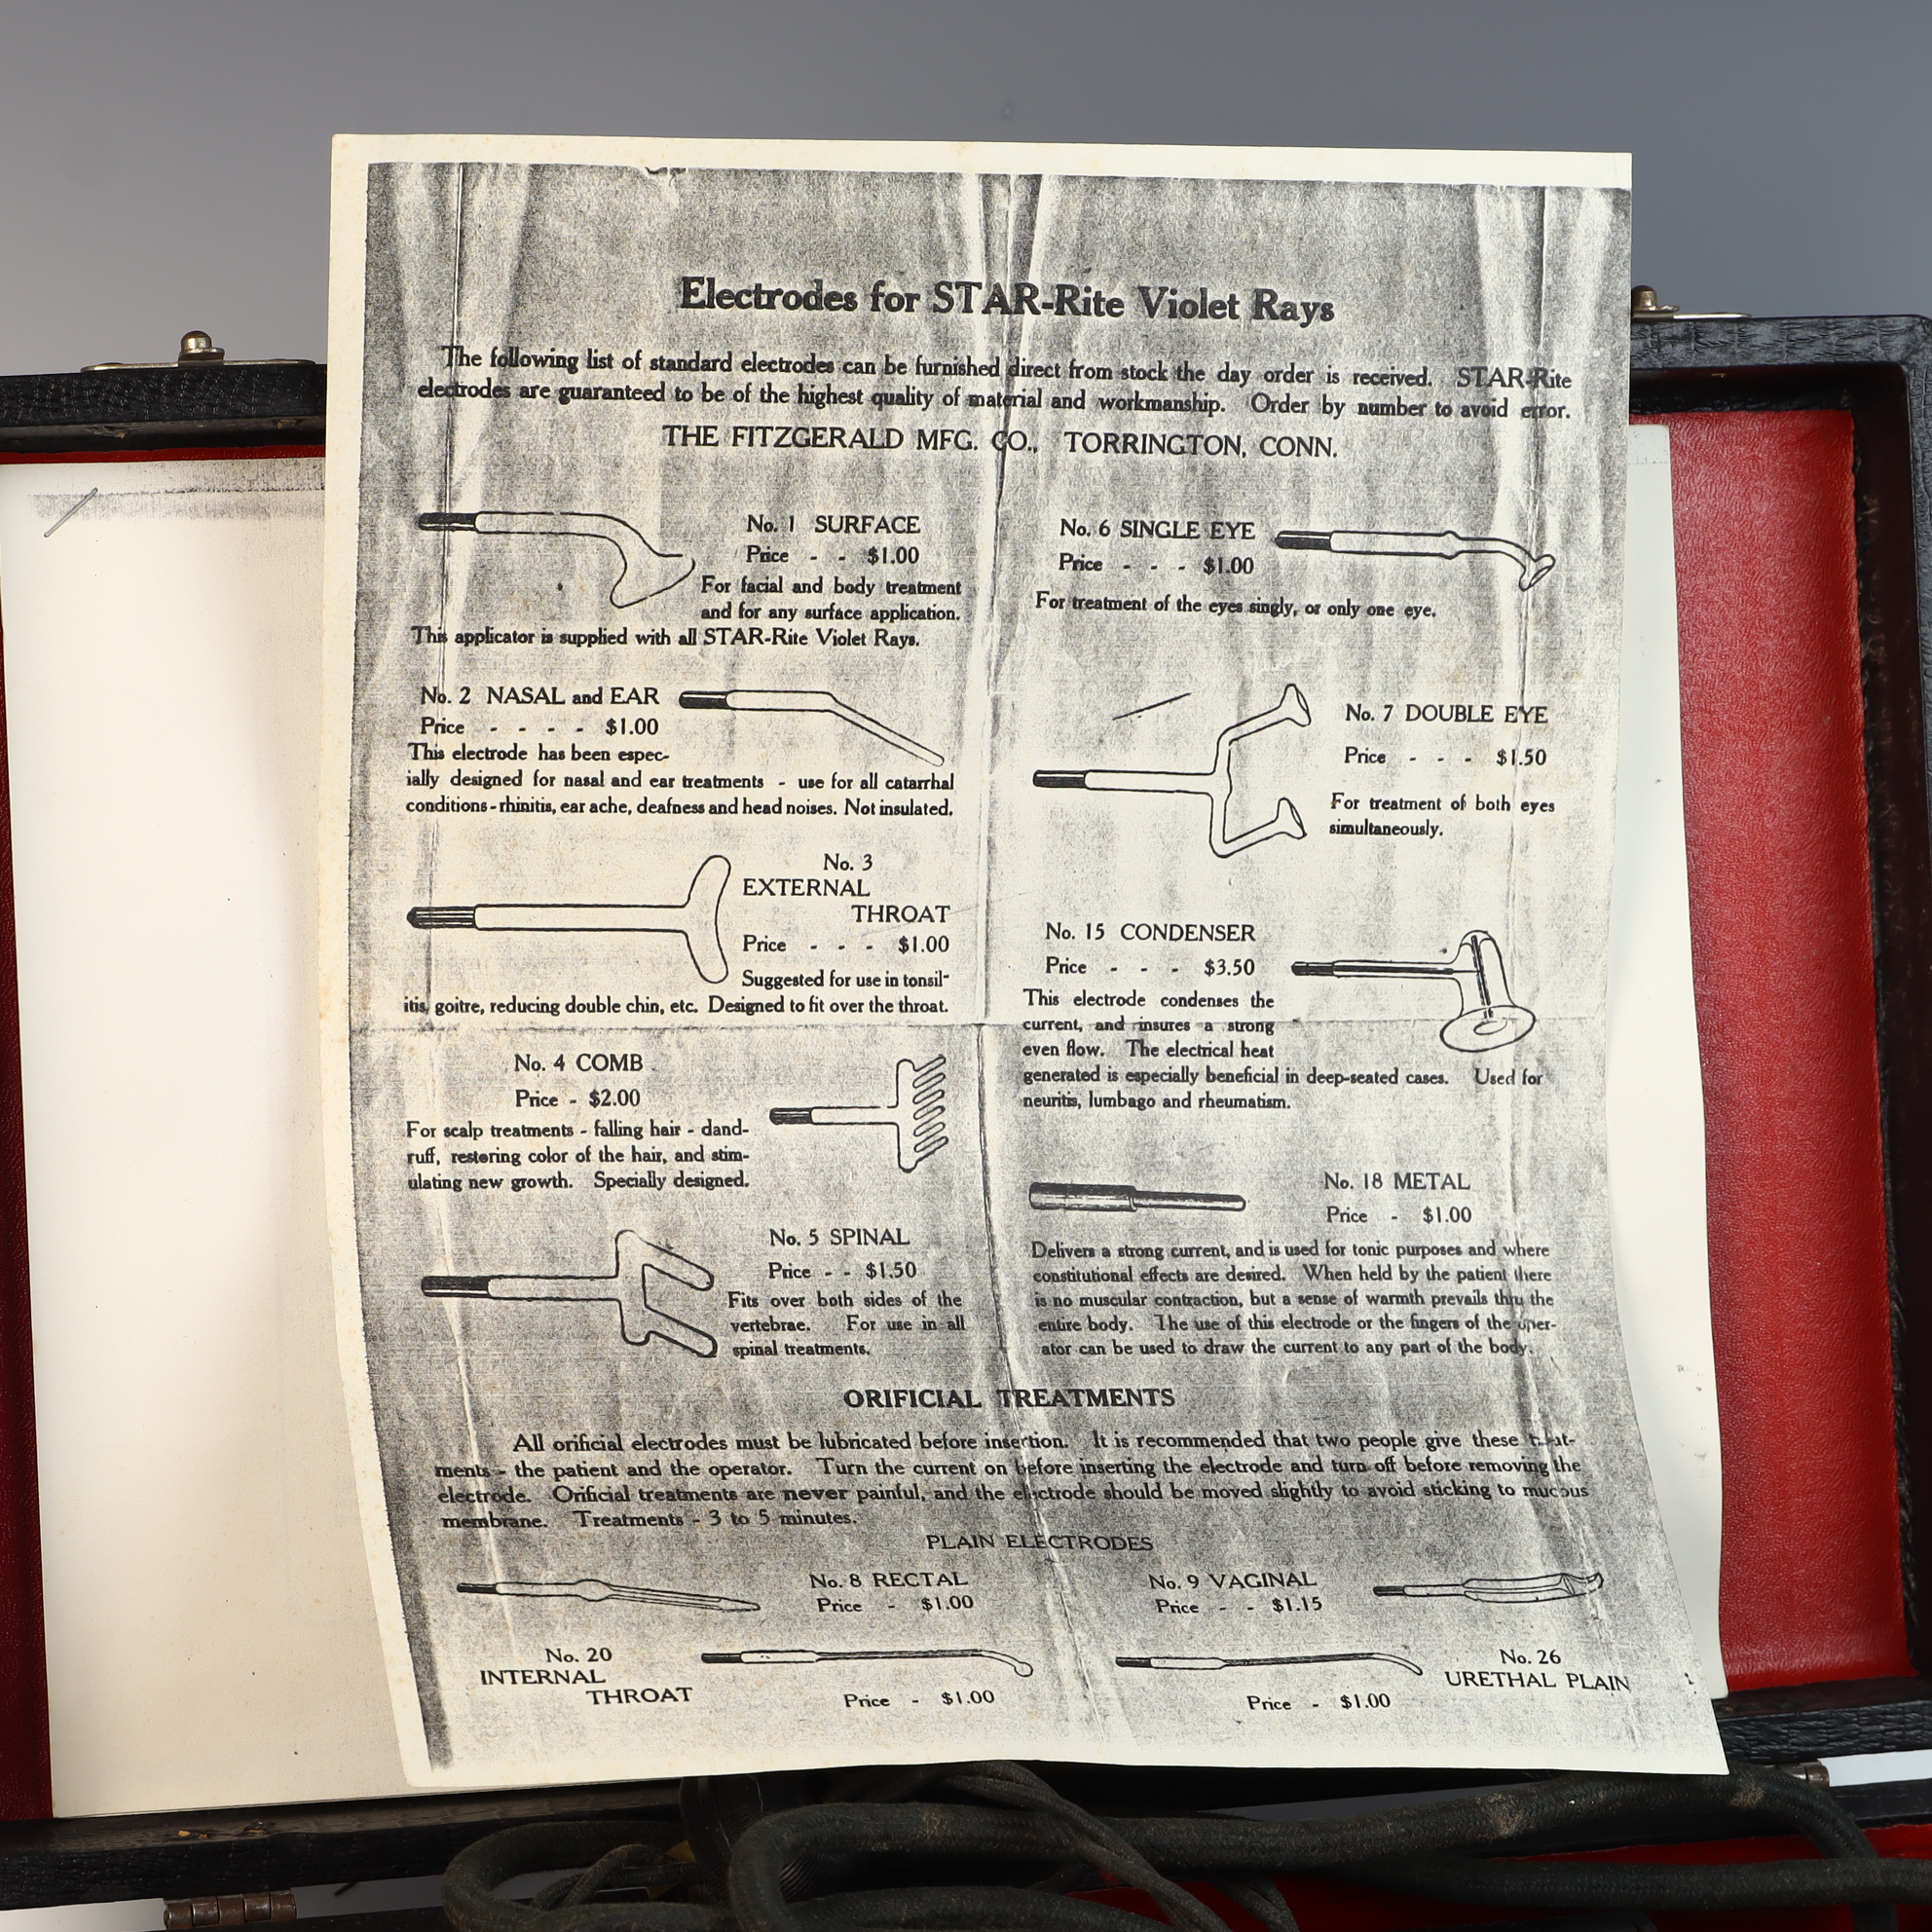 Electrodes for STAR-Rite Violet Rays
The following list of standard electrodes can be furnished direct from stock the day order is received. STAR-Rite
electrodes are guaranteed to be of the highest quality of material and workmanship. Order by number to avoid error.
THE FITZGERALD MFG. CO., TORRINGTON, CONN.
No. 1 SURFACE
Price - - $1.00
For facial and body treatment
and for any surface application.
This applicator is supplied with all STAR-Rite Violet Rays.
No. 2 NASAL and EAR
Price - - - - $1.00
This electrode has been espec-
ially designed for nasal and ear treatments - use for all catarrhal
conditions - rhinitis, ear ache, deafness and head noises. Not insulated.
No. 3
EXTERNAL
THROAT
Price - - - $1.00
Suggested for use in tonsil-
itis, goitre, reducing double chin, etc. Designed to fit over the throat.
No. 4 COMB
Price - $2.00
For scalp treatments - falling hair - dand-
ruff, restoring color of the hair, and stim-
ulating new growth. Specially designed.
No. 5 SPINAL
Price - - $1.50
Fits over both sides of the
vertebrae. For use in all
spinal treatments.
No. 6 SINGLE EYE
Price - - - $1.00
For treatment of the eyes singly, or only one eye.
No. 7 DOUBLE EYE
Price - - - $1.50
For treatment of both eyes
simultaneously.
No. 15 CONDENSER
Price - - - $3.50
This electrode condenses the
current, and insures a strong
even flow. The electrical heat
generated is especially beneficial in deep-seated cases. Used for
neuritis, lumbago and rheumatism.
No. 18 METAL
Price - $1.00
Delivers a strong current, and is used for tonic purposes and where
constitutional effects are desired. When held by the patient there
is no muscular contraction, but a sense of warmth prevails thru the
entire body. The use of this electrode or the fingers of the oper-
ator can be used to draw the current to any part of the body.
ORIFICIAL TREATMENTS
All orificial electrodes must be lubricated before insertion. It is recommended that two people give these treat-
ments - the patient and the operator. Turn the current on before inserting the electrode and turn off before removing the
electrode. Orificial treatments are never painful, and the electrode should be moved slightly to avoid sticking to mucous
membrane. Treatments - 3 to 5 minutes.
PLAIN ELECTRODES
No. 8 RECTAL
Price - $1.00
No. 9 VAGINAL
Price - - $1.15
No. 20
INTERNAL
THROAT
Price - $1.00
No. 26
URETHAL PLAIN
Price - $1.00